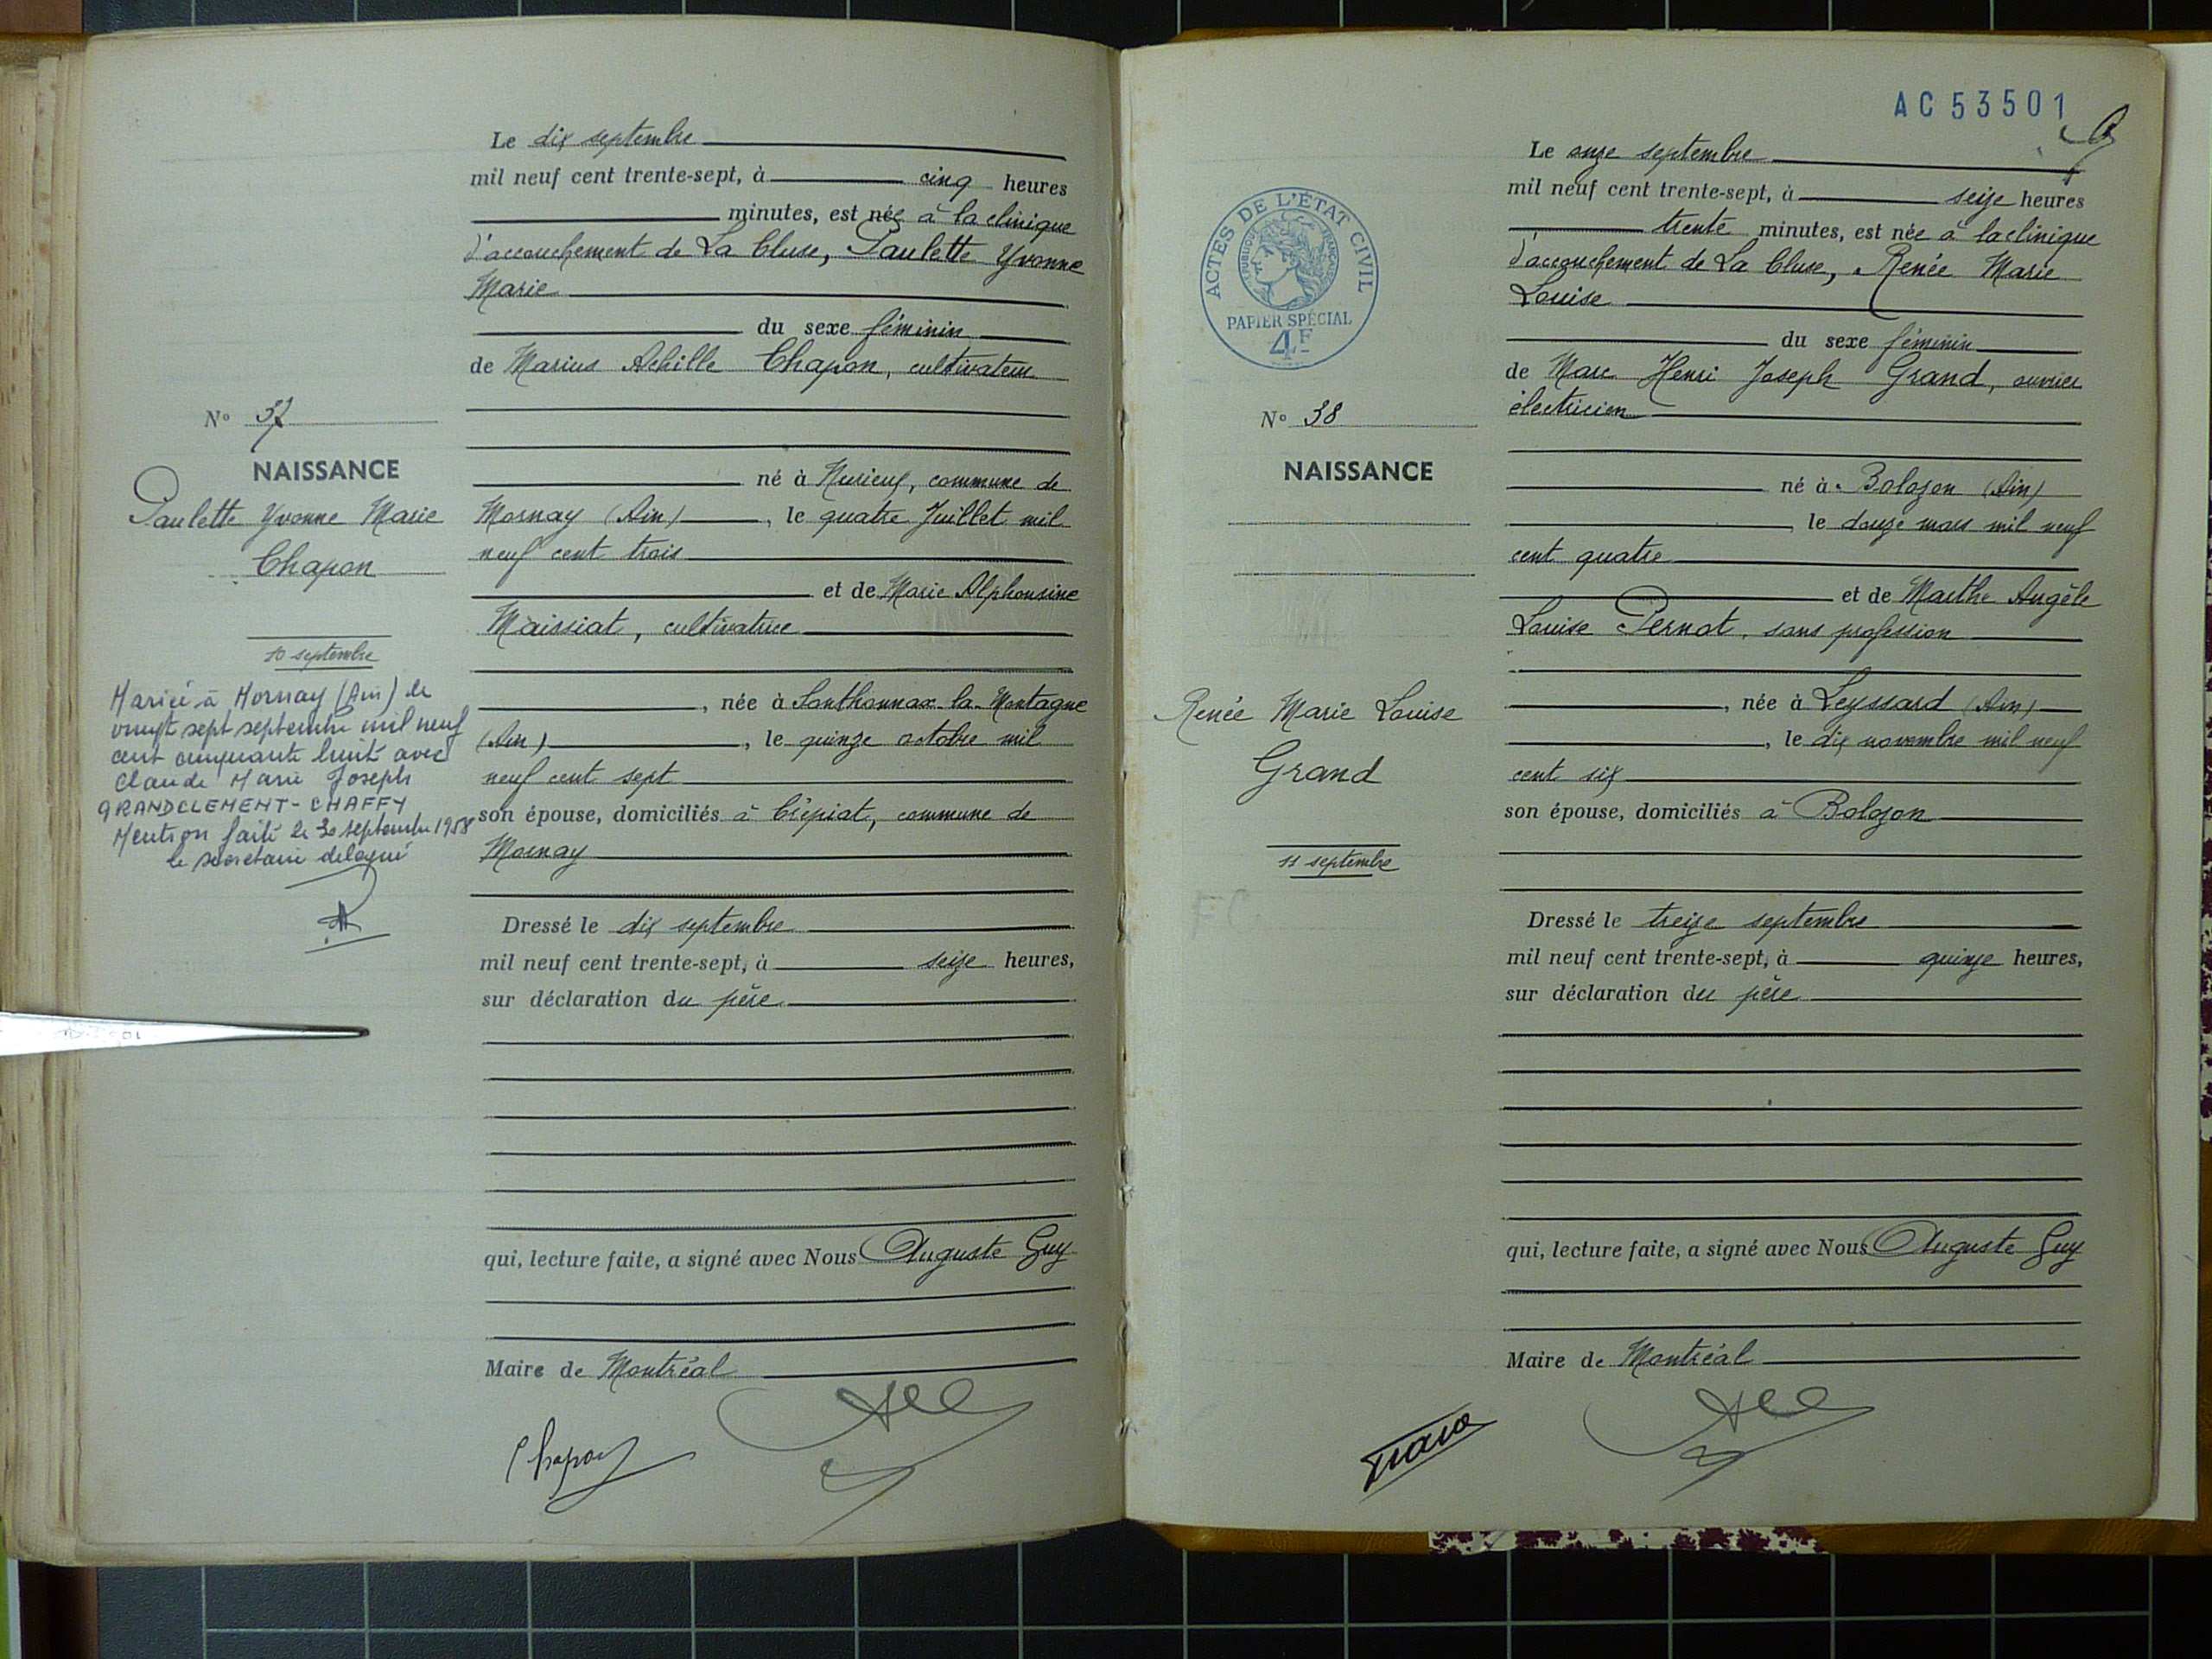 Le dix septembre
mil neuf cent trente-sept, à cinq heures
minutes, est née à la clinique
d'accouchement de La Cluse, Paulette Yvonne
Marie
du sexe féminin
de Marius Achille Chapon, cultivateur
né à Nurieux, commune de
Mornay (Ain), le quatre Juillet mil
neuf cent trois
et de Marie Alphonsine
Maissiat, cultivatrice
, née à Sonthonnax-la-Montagne
(Ain), le quinze octobre mil
neuf cent sept
son épouse, domiciliés à Crépiat, commune de
Mornay
Dressé le dix septembre
mil neuf cent trente-sept, à seize heures,
sur déclaration du père
qui, lecture faite, a signé avec Nous Auguste Guy
Maire de Montréal
Chapon
N° 37
NAISSANCE
Paulette Yvonne Marie
Chapon
10 septembre
Mariée à Mornay (Ain) le
vingt sept septembre mil neuf
cent cinquante huit avec
Claude Marie Joseph
GRANDCLEMENT-CHAFFY
Mention faite le 30 septembre 1958
le secrétaire délégué
AC 53501
ACTES DE L'ÉTAT CIVIL
RÉPUBLIQUE FRANÇAISE
PAPIER SPÉCIAL
4F
Le onze septembre
mil neuf cent trente-sept, à seize heures
trente minutes, est née à la clinique
d'accouchement de La Cluse, Renée Marie
Louise
du sexe féminin
de Marc Henri Joseph Grand, ouvrier
électricien
né à Bolozon (Ain)
, le douze mars mil neuf
cent quatre
et de Marthe Angèle
Louise Pernot, sans profession
, née à Leyssard (Ain)
, le dix novembre mil neuf
cent six
son épouse, domiciliés à Bolozon
Dressé le treize septembre
mil neuf cent trente-sept, à quinze heures,
sur déclaration du père
qui, lecture faite, a signé avec Nous Auguste Guy
Maire de Montréal
N° 38
NAISSANCE
Renée Marie Louise
Grand
11 septembre